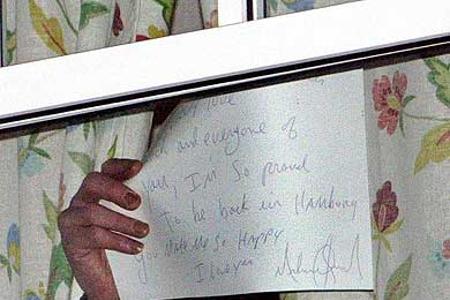 love
and everyone of
you, I'm so proud
To be back in Hamburg
you make me so Happy
I love you